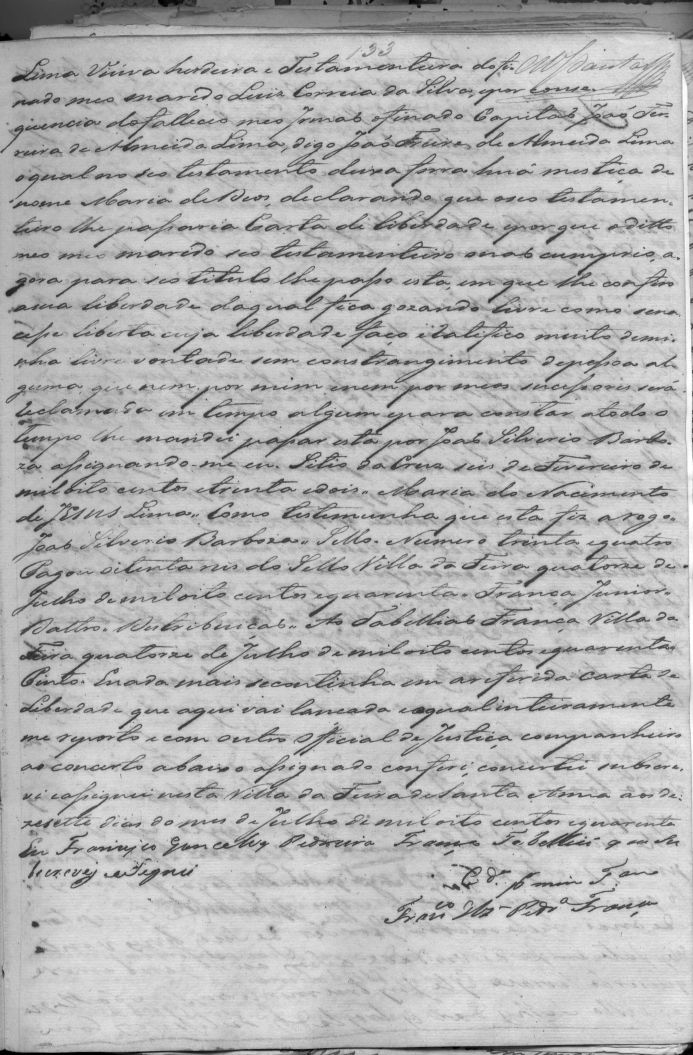 133
Lima Viuva herdeira e Testamenteira do fi-
nado meo marido Luis Correia da Silva, e por conse-
quencia do fallecido meo Irmaõ o finado Capitaõ Joaõ Fer-
reira de Almeida Lima, digo Joaõ Freire de Almeida Lima
o qual no seo testamento deixa forra huã mestiça de
nome Maria de Deos, declarando que o seo testamen-
teiro lhe passaria Carta de liberdade e por que o ditto
meo meo marido seo testamenteiro naõ cumprio, a-
gora para seo titulo lhe passo esta, em que lhe confiro
a sua liberdade da qual fica gozando livre como se na-
cesse liberta cuja liberdade faço e ratefico muito de mi-
nha livre vontade sem constrangimento de pessoa al-
guma, que nem por mim e nem por meos sucessores será
reclamada em tempo algum e para constar a todo o
tempo lhe mandei passar esta por Joaõ Silverio Barbo-
za assignando-me eu. Sitio da Cruz seis de Fevereiro de
mil oito centos e trinta e dois. Maria do Nacimento
de Jesus Lima. Como testemunha que esta fiz a rogo.
Joaõ Silverio Barboza. Sello. Numero trinta e quatro
Pagou oitenta reis do Sello Villa da Feira quatorze de
Julho de mil oito centos e quarenta. França Junior.
Distribuiçaõ. Ao Tabelliaõ França Villa da
Feira quatorze de Julho de mil oito centos e quarenta.
Pinto. E nada mais se continha em a referida carta de
Liberdade que aqui vai lançada e a qual inteiramente
me reporto e com outro Official de Justiça companheiro
ao concerto abaixo assignado conferi, concertei subscre-
vi e assignei nesta Villa da Feira de Santa Anna aos de-
zesette dias do mes de Julho de mil oito centos e quarenta
Eu Francisco Gonçalves Pedreira França Tabelliaõ que su
bscrevi e asignei
C.da p mim T.am
Fran.co Glz Pedr.a França